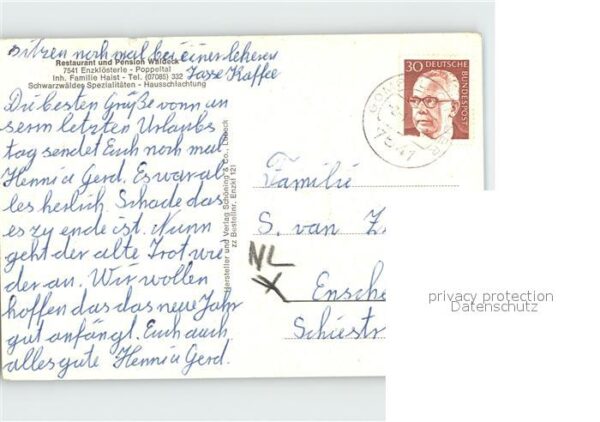 sitzen noch mal bei einer leheren
Restaurant und Pension Waldeck
7541 Enzklösterle - Poppeltal
Inh. Familie Haist - Tel. (07085) 332
Tasse Kaffee
Schwarzwälder Spezialitäten - Hausschlachtung
Die besten Grüße vonn un
serm letzten Urlaubs
tag sendet Euch noch mal
Henni u Gerd. Es war al
les herlich. Schade das
es zu ende ist. Nunn
geht der alte Trot wie
der an. Wir wollen
hoffen das das neue Jahr
gut anfängt. Euch auch
alles gute Henni u Gerd.
Hersteller und Verlag Schöning & Co., Lübeck
zz Bestellnr. Enzkl 121
30 DEUTSCHE
BUNDESPOST
7541
Familie
S. van Z
NL
Ensche
Schiestr
privacy protection
Datenschutz